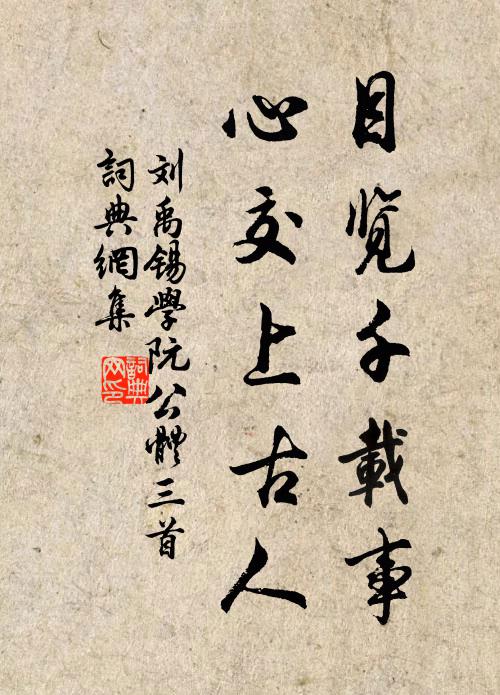 目览千載事
心交上古人
刘禹锡學阮公體三首
詞典網集
詞典網印